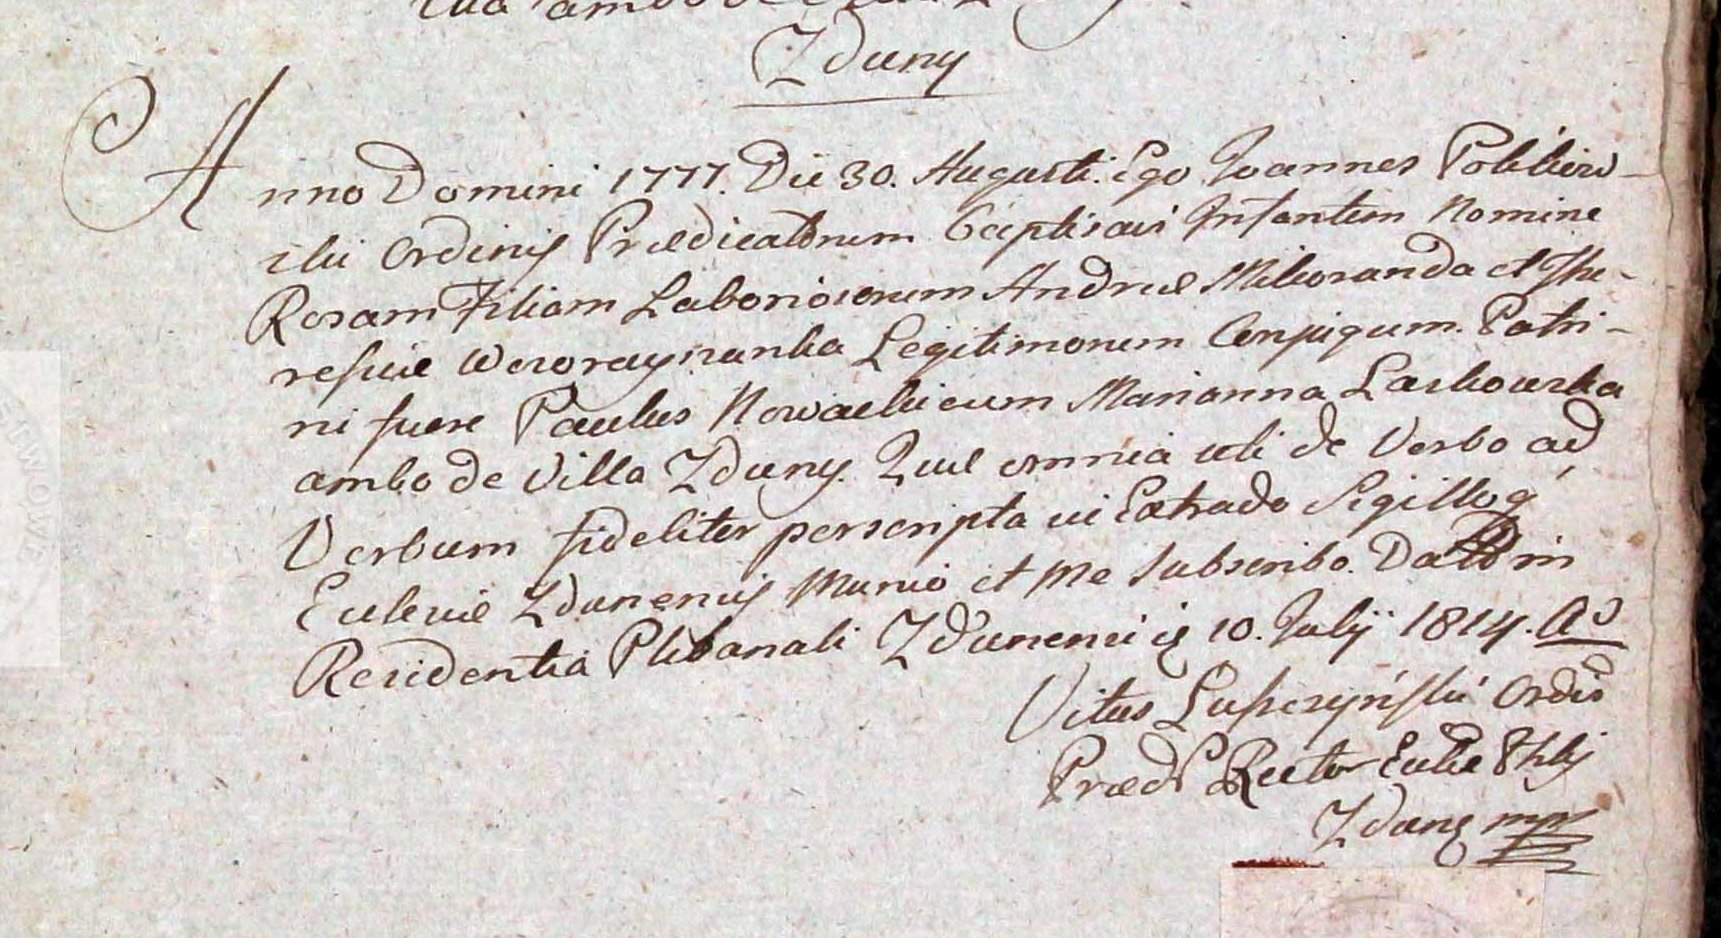 Zduny
Anno Domini 1777. Die 30. Augusti. Ego Joannes
ski Ordinis Prædicatorum baptisavi Infantem Nomine
Rosam Filiam Laboriosorum Andreæ Mikoranda et The-
resiæ Legitimorum Conjugum. Patri-
ni fuere Paulus Nowacki cum Marianna Laskowska
ambo de Villa Zduny. Quæ omnia uti de Verbo ad
Verbum fideliter perscripta ut Extrado Sigilloq
Eccleiæ Zdunensis Munio et me Subscribo. in
Residentia Plebanali Zdunensi 10. Julij 1814. Ao
Vitus Ordis
Præd Rector
Zduny mpr